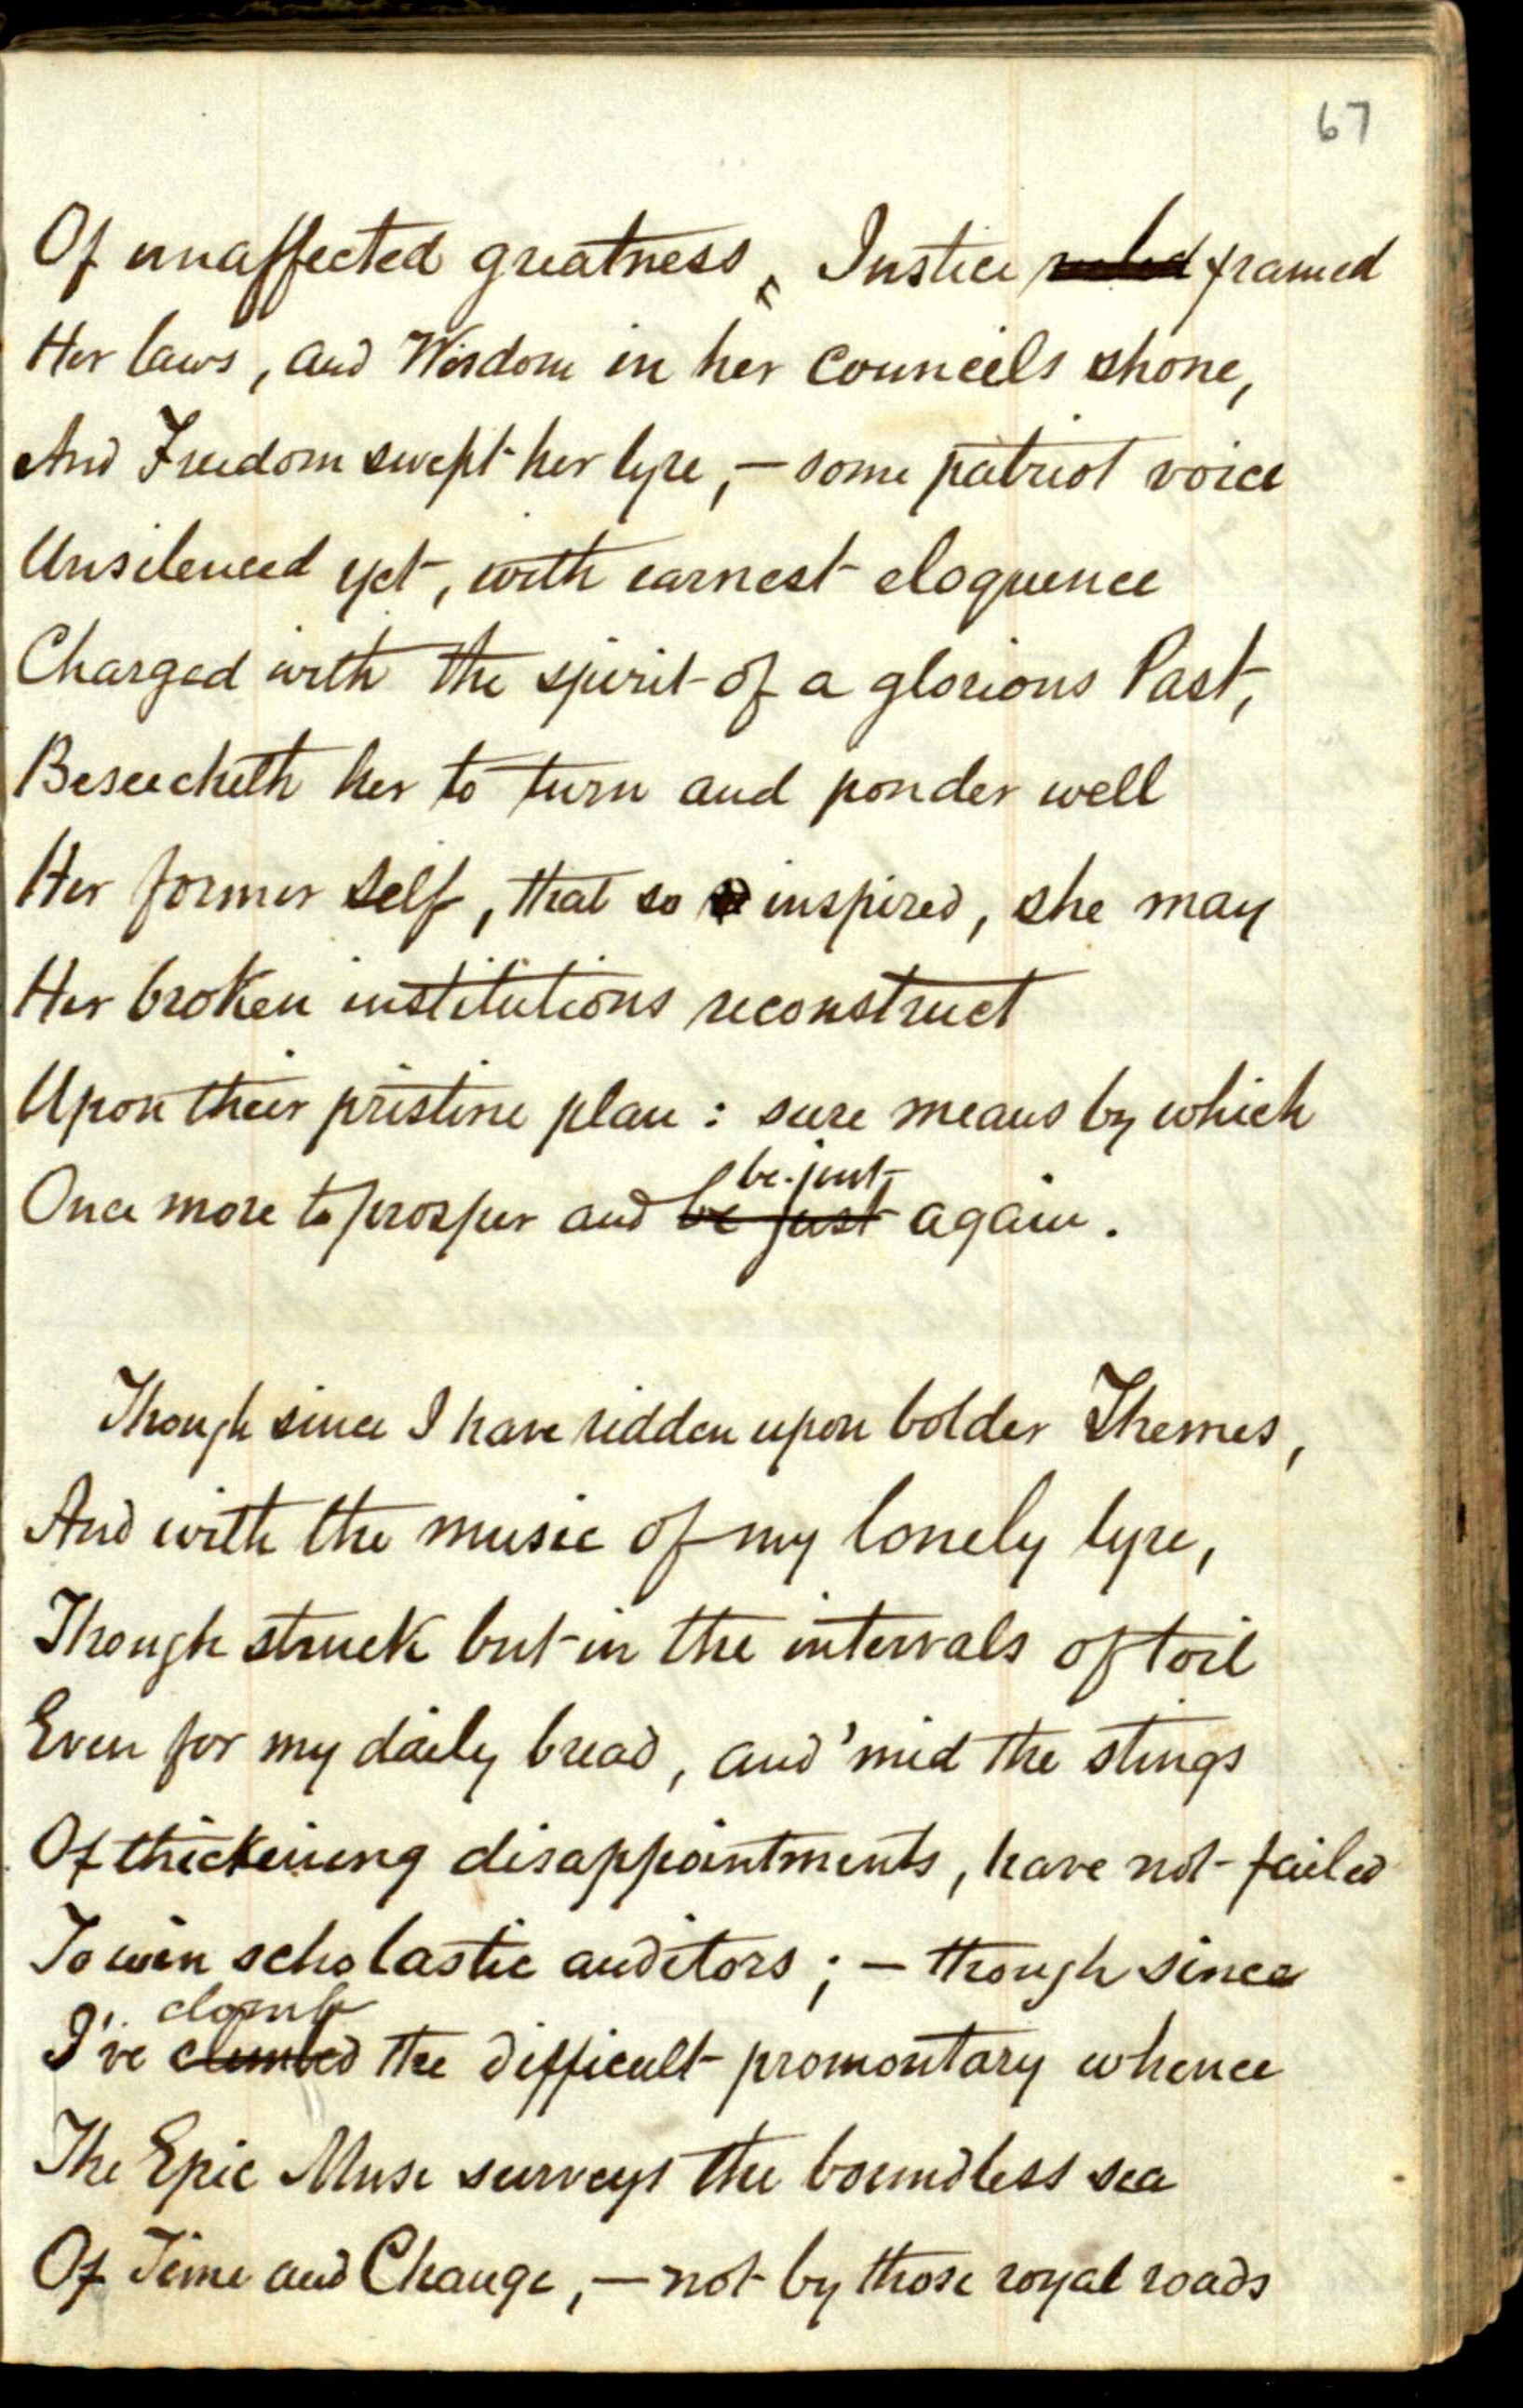 67
Of unaffected greatness, Justice ruled framed
Her laws, and Wisdom in her Councils shone,
And Freedom swept her lyre, — some patriot voice
Unsilenced yet, with earnest eloquence
Charged with the spirit of a glorious Past,
Beseecheth her to turn and ponder well
Her former self, that so inspired, she may
Her broken institutions reconstruct
Upon their pristine plan: sure means by which
be just
Once more to prosper and be just again.
Though since I have ridden upon bolder Themes,
And with the music of my lonely lyre,
Though struck but in the intervals of toil
Even for my daily bread, and 'mid the stings
Of thickening disappointments, have not failed
To win scholastic auditors; — though since
clomb
I've climbed the difficult promontary whence
The Epic Muse surveys the boundless sea
Of Time and Change, — not by those royal roads